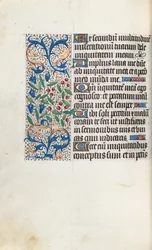 et secundum multitudinem
miserationum tuarum dele
iniquitatem meam
Amplius lava me
ab iniquitate mea et a pecca
meo munda me
Quoniam iniquitatem meam ego
cognosco et peccatum meum
contra me est semper
Tibi soli peccavi et malum
coram te feci ut iustificeris
in sermonibus tuis et
cas cum iudicaris
Ecce enim in iniquitatibus
conceptus sum et in pec